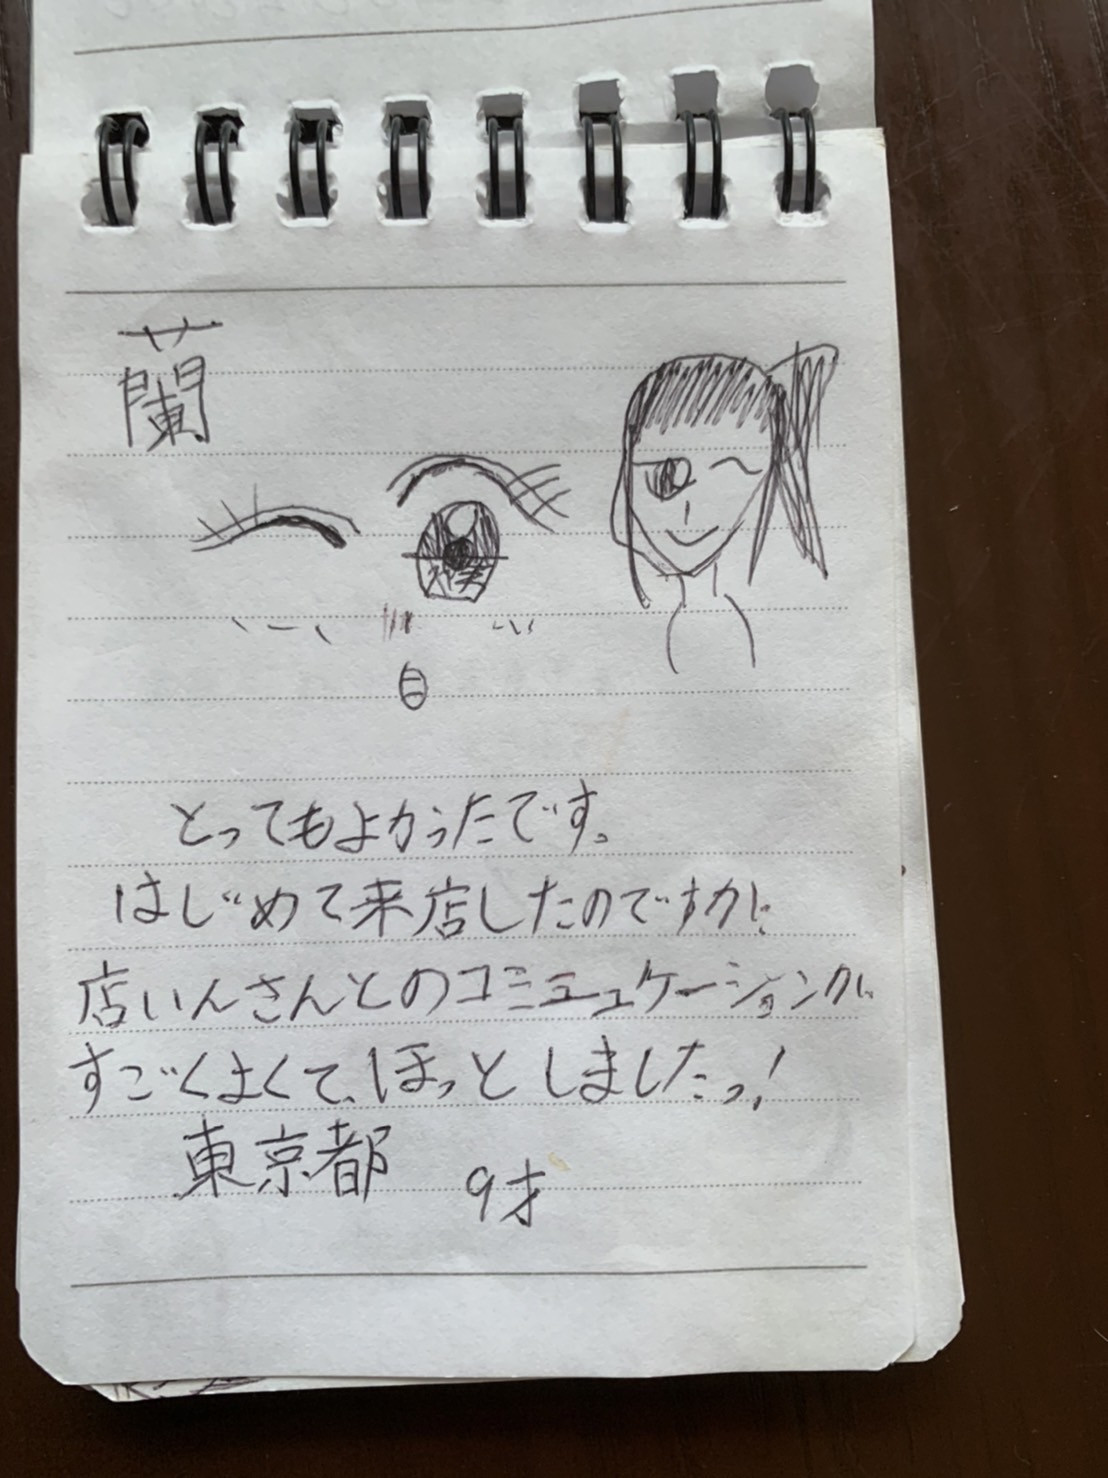 蘭
とってもよかったです。
はじめて来店したのですが、
店いんさんとのコミュニュケーションが、
すごくよくて、ほっとしましたっ!
東京都 9才